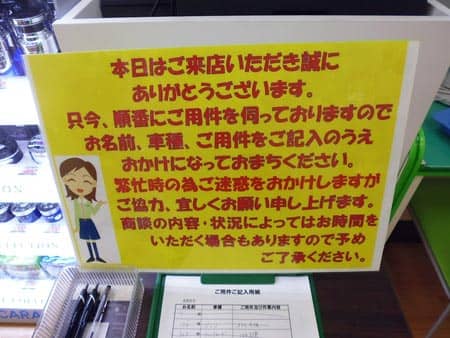 本日はご来店いただき誠に
ありがとうございます。
只今、順番にご用件を伺っておりますので
お名前、車種、ご用件をご記入のうえ
おかけになっておまちください。
繁忙時の為ご迷惑をおかけしますが
ご協力、宜しくお願い申し上げます。
商談の内容・状況によってはお時間を
いただく場合もありますので予め
ご了承ください。
ご用件ご記入用紙
お名前 車種
CARA